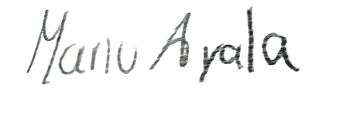 Manu Ayala